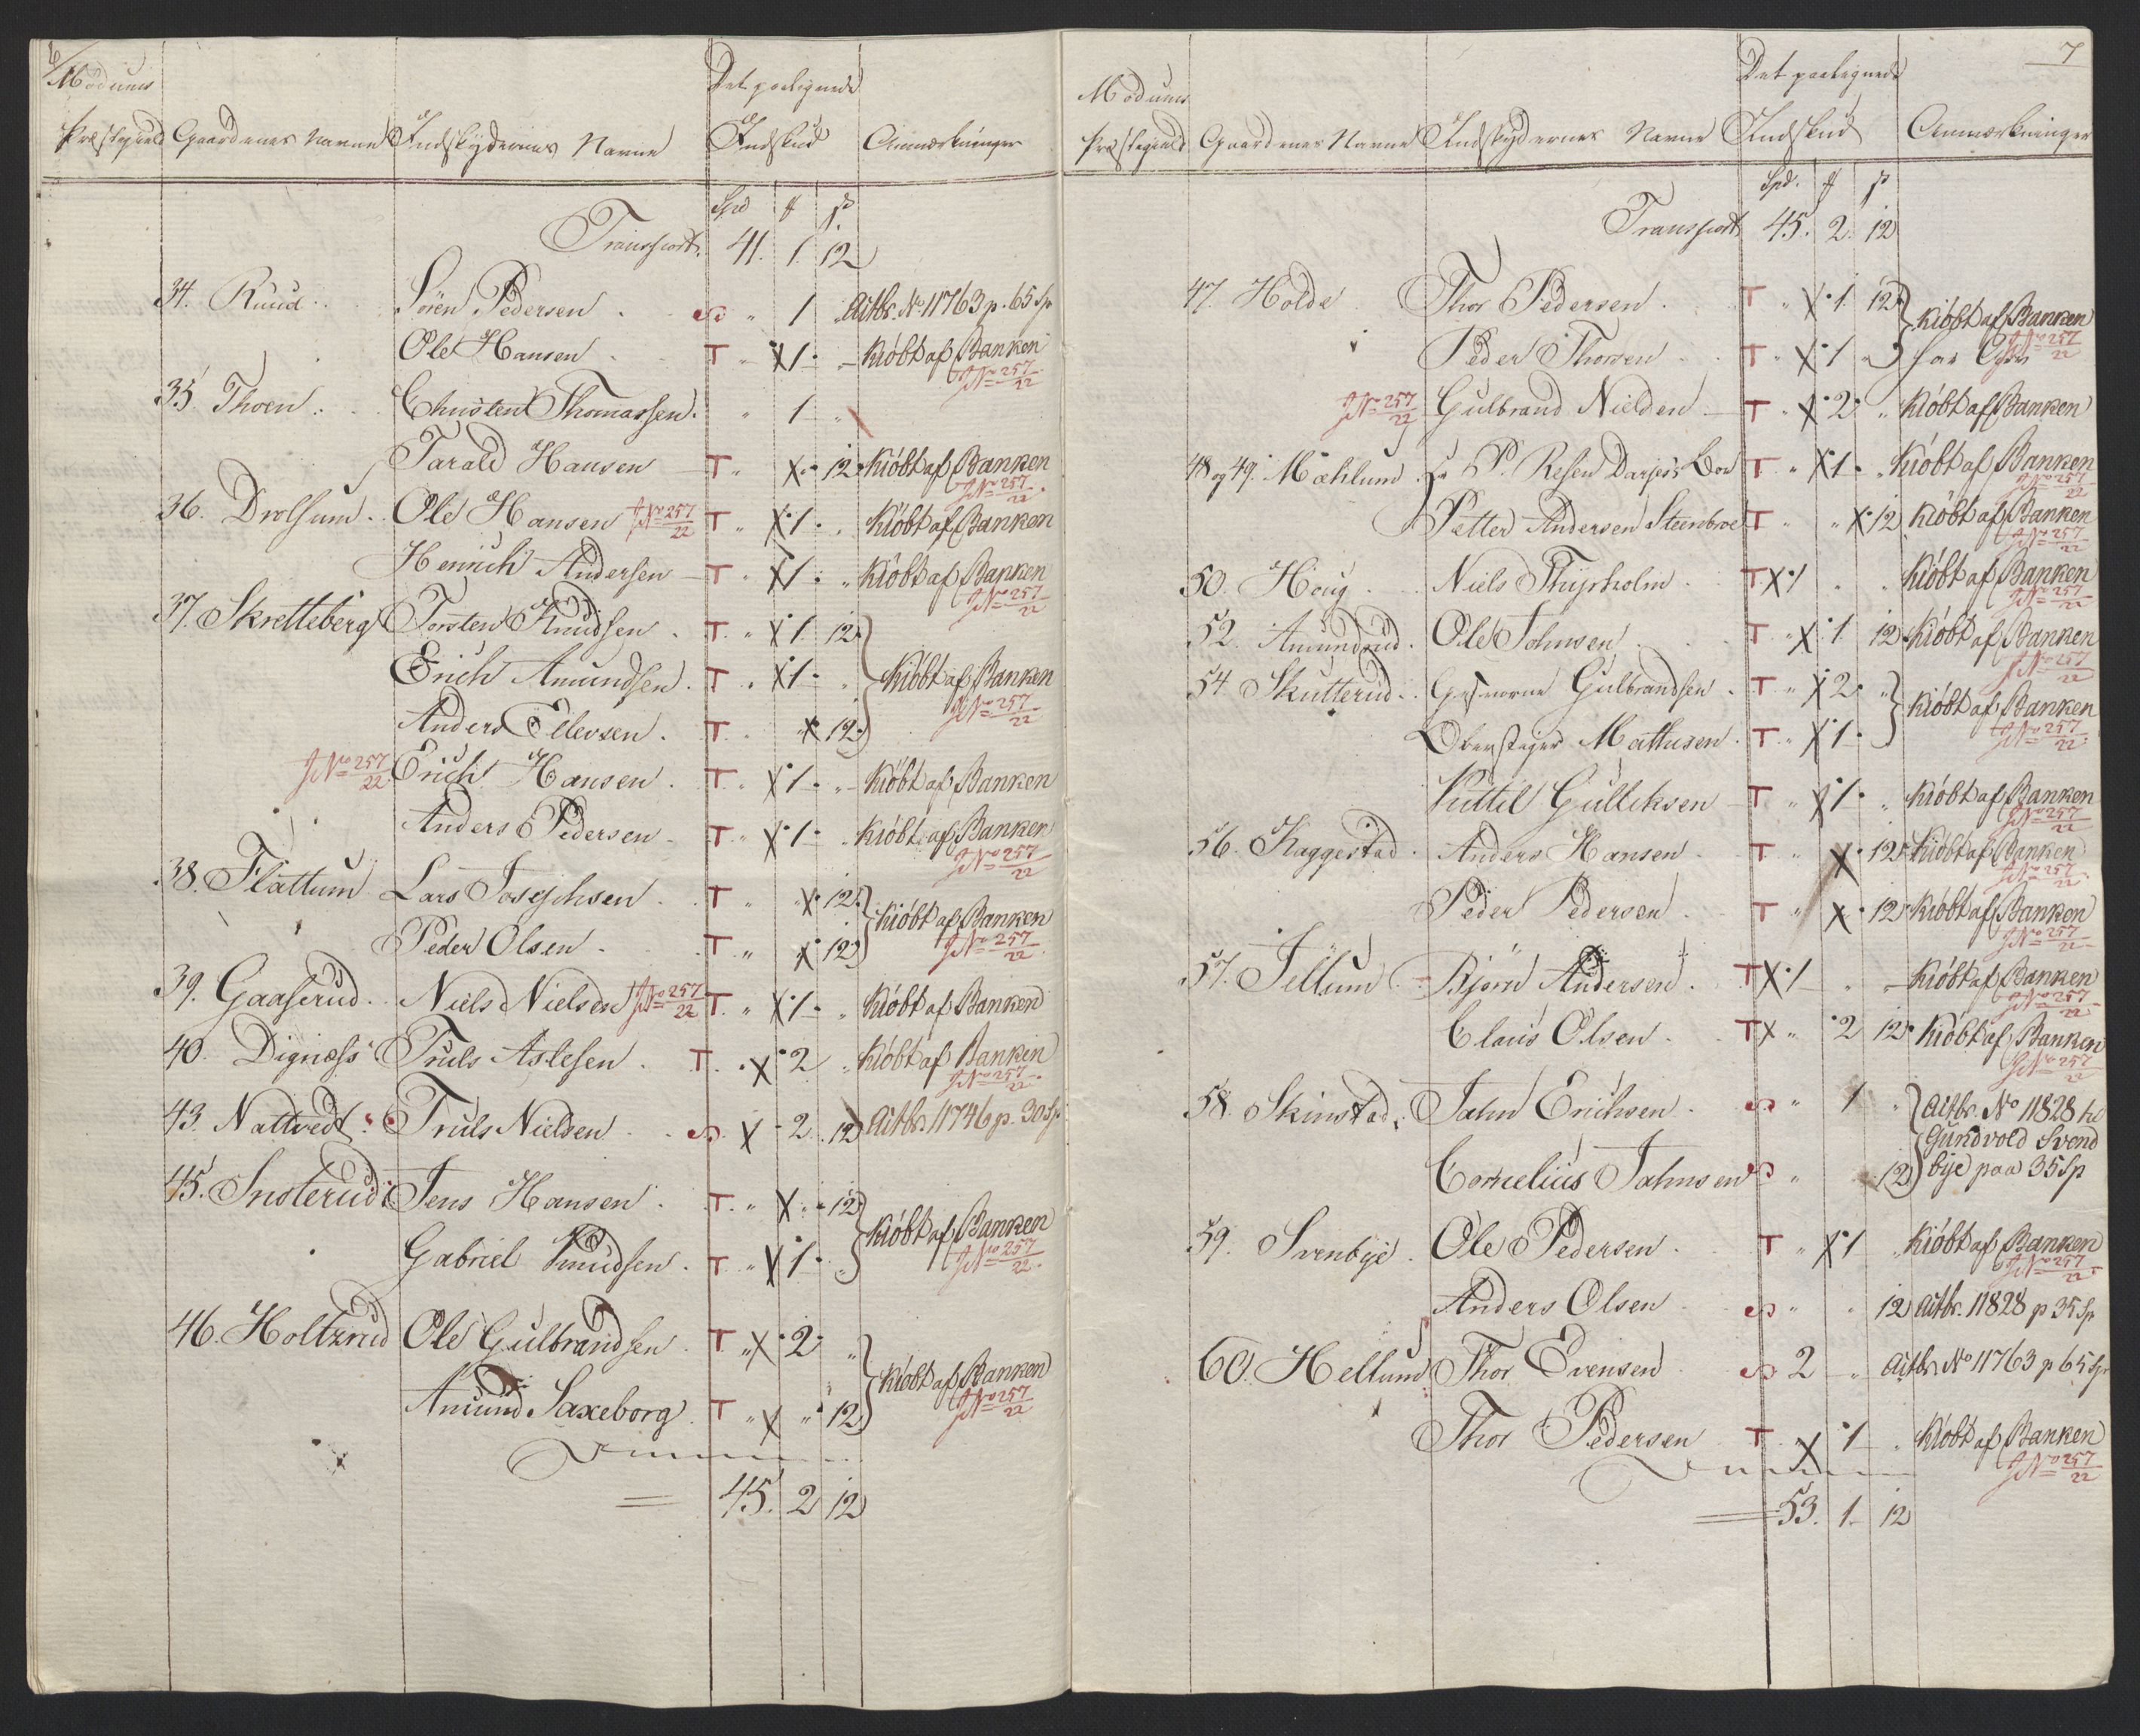 6/
Modums
Præstegield Gaardenes Navne Indskydernes Navne Det paalignede Indskud Anmærkninger
Spd ß
Transport. 41. 1. 12
34. Ruud. Sören Pedersen. S " 1 Actbr. No 11763 p. 65 Sp
Ole Hansen T " X 1. Kiöbt af Banken
J No 257/22
35. Thoen. Christen Thomassen. " 1 "
Tarald Hansen T " X " 12 Kiöbt af Banken
J No 257/22
36. Drolsum. Ole Hansen J No 257/22 T " X 1. " Kiöbt af Banken
Henrich Andersen T " X 1. " Kiöbt af Banken
J No 257/22
37. Skretteberg Torsten Knudsen. T " X 1 12
Erich Amundsen. T " X 1 " } Kiöbt af Banken
J No 257/22
Anders Ellevsen. T " X 12
J No 257/22 Erich Hansen. T " X 1. " Kiöbt af Banken
Anders Pedersen T " X 1. " Kiöbt af Banken
J No 257/22
38. Flattum Lars Josephsen. T " X 12 } Kiöbt af Banken
Peder Olsen. T " X 12 J No 257/22
39. Gaaserud. Niels Nielsen J No 257/22 T " X 1. " Kiöbt af Banken
40. Dignæss Truls Aslesen. T. " X 2 " Kiöbt af Banken
J No 257/22
43. Nattvedt. Truls Nielsen. S. X 2 12 Actbr. 11746 p. 30 Sp.
45. Snoterud Jens Hansen. T. " X " 12 } Kiöbt af Banken
Gabriel Knudsen. T " X 1. " J No 257/22
46. Holtzrud Ole Gulbrandsen. T " X 2 " } Kiöbt af Banken
Amund Saxeborg. T " X " 12 J No 257/22
= 45. 2 12
7
Modums
Præstegield Gaardenes Navne Indskydernes Navne Det paalignede Indskud Anmærkninger
Spd. ß
Transport 45. 2. 12
47. Holde Thor Pedersen. T " X 1 12 } Kiöbt af Banken
J No 257/22
Peder Thorsen T " X 1 "
J No 257/22 Gulbrand Nielsen T " X 2 " Kiöbt af Banken
48 og 49. Mæhlum Hr P. Resen Darjes Boe T " X 1. " Kiöbt af Banken
J No 257/22
Petter Andersen Steenbroe T " " X 12 Kiöbt af Banken
J No 257/22
50. Houg. Niels Thyrholm. T X 1 " " Kiöbt af Banken
J No 257/22
52. Amundrud. Ole Johnsen T " X 1 12 Kiöbt af Banken
J No 257/22
54 Skutterud. Gesvorne Gulbrandsen. T " X 2 " } Kiöbt af Banken
Obersteger Mathiesen. T " X 1. J No 257/22
Kittil Gulliksen T " X 1. " Kiöbt af Banken
J No 257/22
56. Kaggestad. Anders Hansen. T " X 12 Kiöbt af Banken
J No 257/22
Peder Pedersen. T " X 12 Kiöbt af Banken
J No 257/22
57. Jellum Bjørn Andersen. T X 1 " Kiöbt af Banken
J No 257/22
Claus Olsen. T X " 2 12 Kiöbt af Banken
J No 257/22
58. Skinstad. Jahn Erichsen. S " 1 " } Actbr. No 11828 til
Gundvold Svend
Cornelius Jahnsen S " 12 bye paa 35 Sp
59. Svenbye. Ole Pedersen. T " X 1 " Kiöbt af Banken
J No 257/22
Anders Olsen. S " " 12 Actbr. 11828 p 35 Sp
60. Hellum Thor Evensen S 2 " Actbr. No 11763 p 65 Sp
Thor Pedersen T. X 1 " Kiöbt af Banken
J No 257/22
= 53. 1. 12